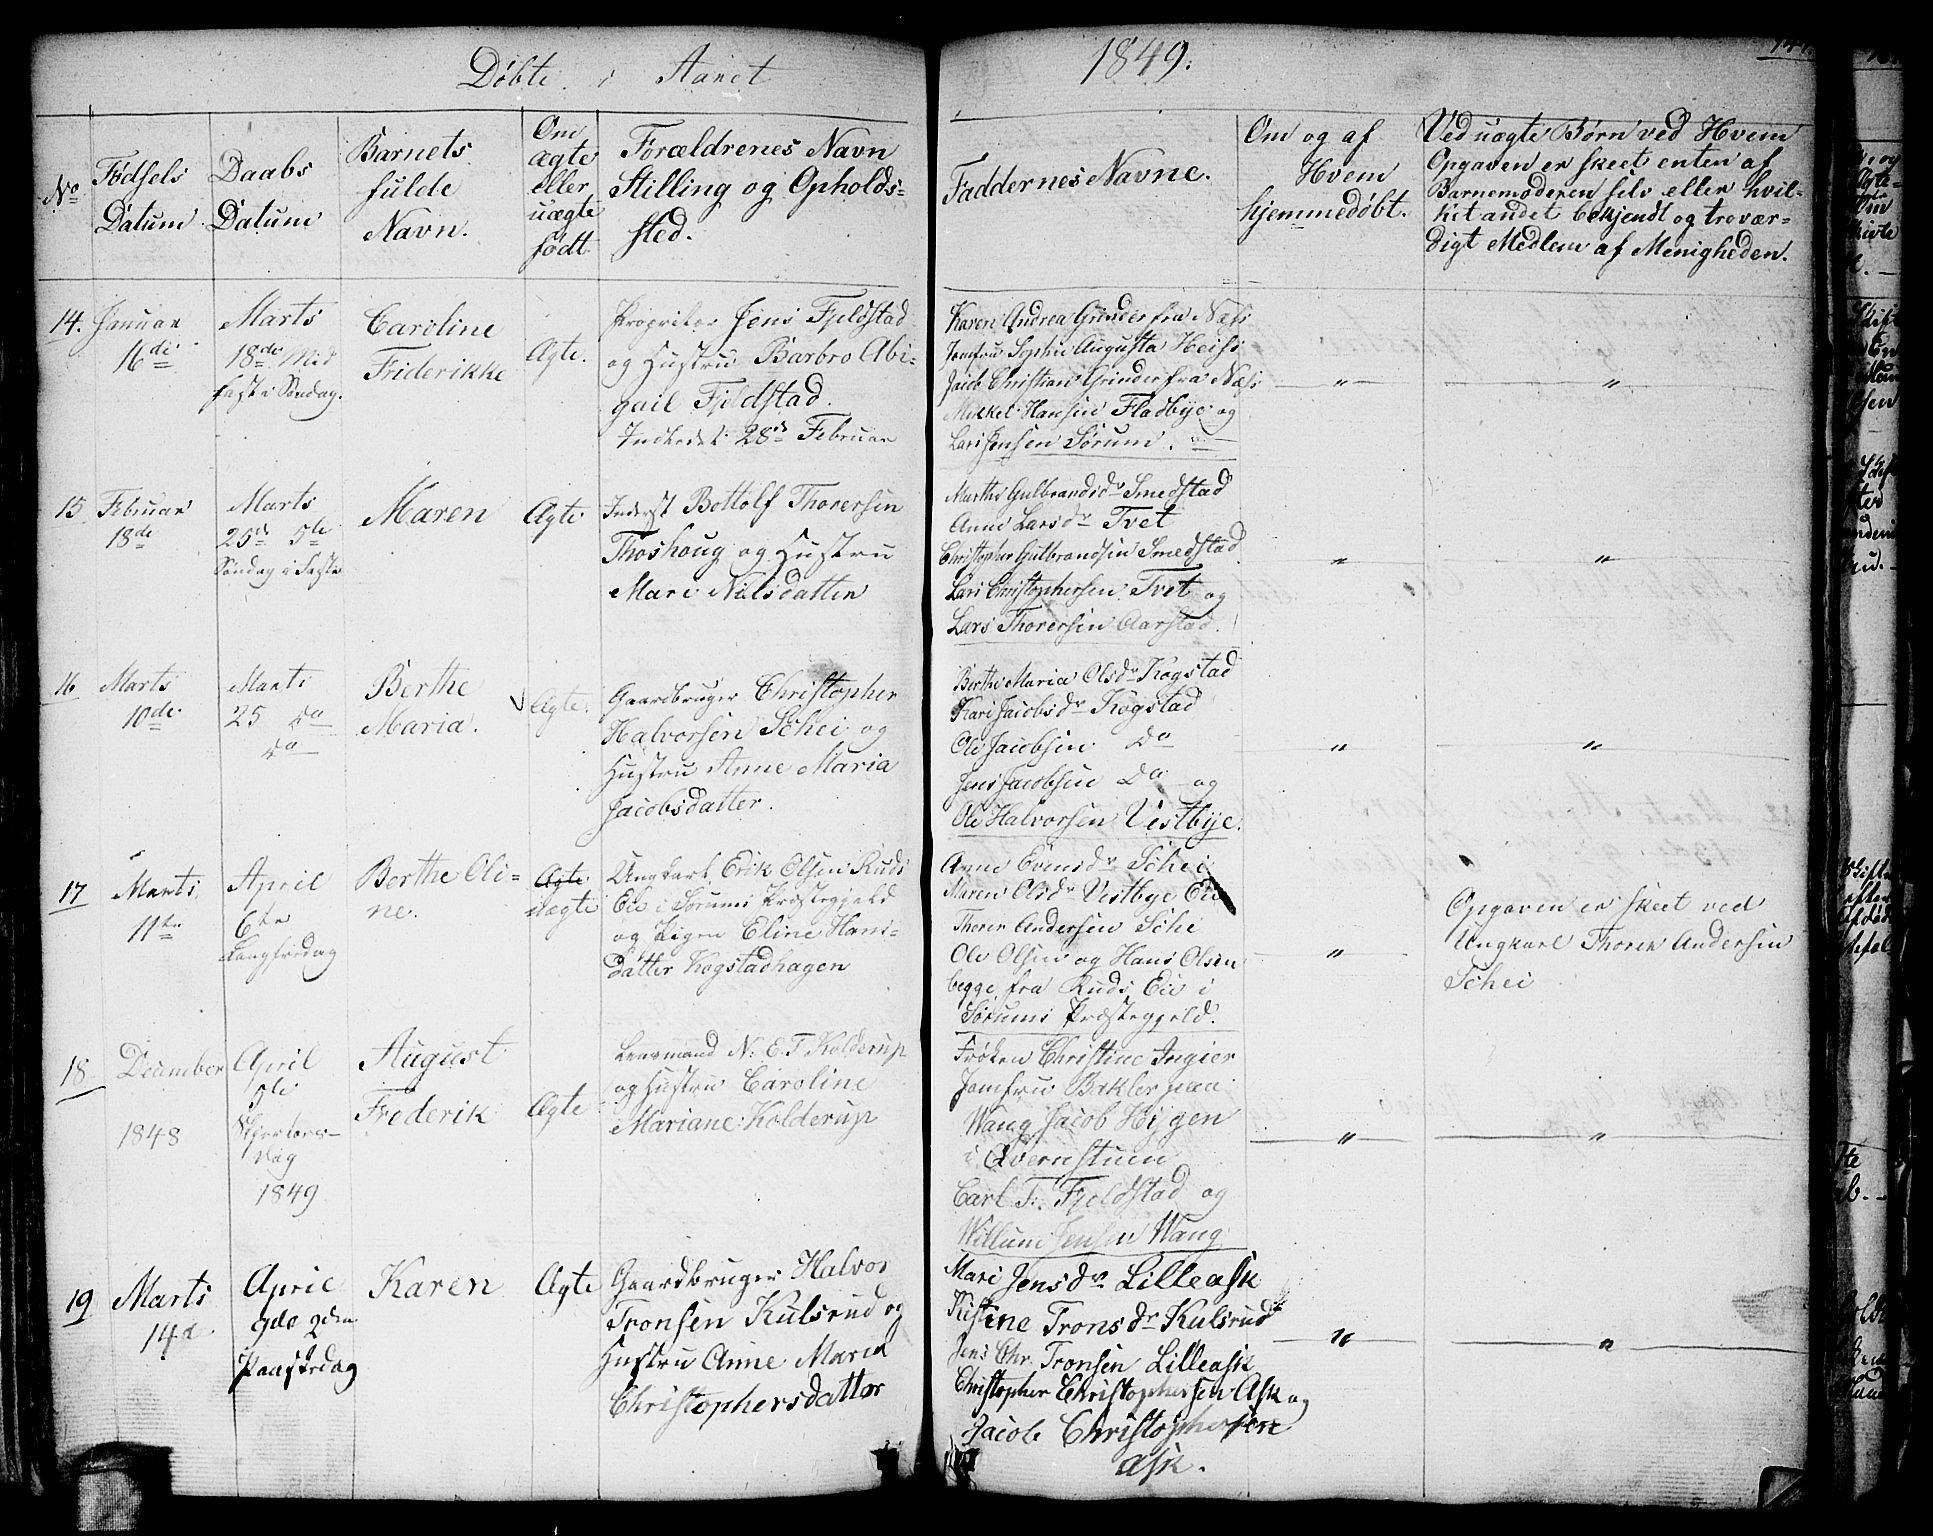 Døbte i Aaret 1849.
No
Fødsels Datum.
Daabs Datum
Barnets fulde Navn.
Om ægte eller uægte født.
Forældrenes Navn Stilling og Opholds-sted.
Faddernes Navne.
Om og af Hvem hjemmedøbt.
Ved uægte Børn ved Hvem
Opgaven er skeet enten af
Barnemoderen selv eller hvil-
ket andet bekjendt og trovær-
digt Medlem af Menigheden.
14.
Januar
16de
Marts
18de Mid
faste Søndag.
Caroline
Friderikke
Ægte.
Propritær Jens Fjeldstad
og Hustru Barbro Abi-
gail Fjeldstad.
Indledet 28de Februar
Karen Andrea Grinder fra Næs
Jomfru Sophie Augusta Heiss
Jacob Christian Grinder fra Næs
Mikkel Hansen Fladbye og
Lars Jensen Sørum.
"
"
15
Februar
18de
Marts
25de 5te
Søndag i Faste
Maren
Ægte
Inderst Bottolf Thoresen
Thoshoug og Hustru
Mari Nilsdatter
Marthe Gulbrandsdr Smedstad
Anne Larsdr Tvet
Christopher Gulbrandsen Smedstad
Lars Christophersen Tvet og
Lars Thoresen Aarstad.
"
"
16
Marts
10de
Marts
25 do
do
Berthe
Maria.
Ægte.
Gaardbruger Christopher
Halvorsen Schei og
Hustru Anne Maria
Jacobsdatter.
Berthe Maria Olsdr Kogstad
Kari Jacobsdr Kogstad
Ole Jacobsen Do
Jens Jacobsen Do og
Ole Halvorsen Vestbye.
"
"
17
Marts
11te
April
6te
Langfredag
Berthe Oli-
ne.
Ægte
uægte
Ungkarl Erik Olsen Ruds
Eie i Sørums Præstegjeld
og Pigen Eline Hans-
datter Kogstadhagen
Anne Evensdr Schei
Maren Olsdr Vestbye Eie
Thorer Andersen Schei
Ole Olsen og Hans Olsen
begge fra Ruds Eie i
Sørums Præstegjeld.
"
Opgaven er skeet ved
Ungkarl Thorer Andersen
Schei
18
December
1848
April
5te
Skjertors-
dag
1849
August
Frederik
Ægte
Lensmand N: E. T Kolderup
og Hustru Caroline
Mariane Kolderup
Frøken Christine Ingier
Jomfru Bekler paa
Wang Jacob Hygen
i Qvernstuen
Carl T. Fjeldstad og
Willum Jensen Wang
"
"
19
Marts
14d
April
9de 2den
Paaskedag
Karen
Ægte
Gaardbruger Halvor
Tronsen Kulsrud og
Hustru Anne Maria
Christophersdatter
Mari Jensdr Lilleask
Kistine Tronsdr Kulsrud
Jens Chr. Tronsen Lilleask
Christopher Christophersen Ask og
Jacob Christophersen
Ask.
"
"